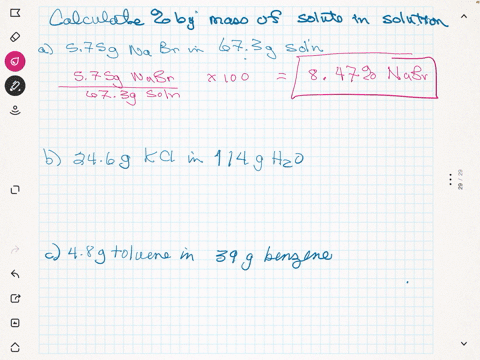 Calculate % by mass of solute in solution
a) 5.75g NaBr in 67.3g soln
5.75g NaBr × 100 = 8.47% NaBr
67.3g soln
b) 24.6g KCl in 114g H2O
c) 4.8g toluene in 39g benzene
29 / 29